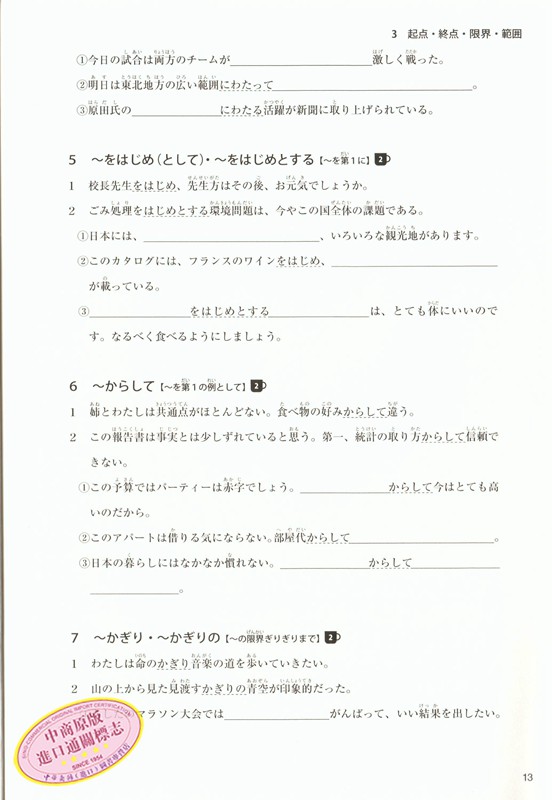 3 起点・終点・限界・範囲
①今日の試合は両方のチームが＿＿＿＿＿＿＿＿激しく戦った。
②明日は東北地方の広い範囲にわたって＿＿＿＿＿＿＿＿。
③原田氏の＿＿＿＿＿＿＿＿にわたる活躍が新聞に取り上げられている。
5 〜をはじめ（として）・〜をはじめとする【〜を第1に】2
1 校長先生をはじめ、先生方はその後、お元気でしょうか。
2 ごみ処理をはじめとする環境問題は、今やこの国全体の課題である。
①日本には、＿＿＿＿＿＿＿＿、いろいろな観光地があります。
②このカタログには、フランスのワインをはじめ、＿＿＿＿＿＿＿＿
が載っている。
③＿＿＿＿＿＿＿＿をはじめとする＿＿＿＿＿＿＿＿は、とても体にいいので
す。なるべく食べるようにしましょう。
6 〜からして【〜を第1の例として】2
1 姉とわたしは共通点がほとんどない。食べ物の好みからして違う。
2 この報告書は事実とは少しずれていると思う。第一、統計の取り方からして信頼で
きない。
①この予算ではパーティーは赤字でしょう。＿＿＿＿＿＿＿＿からして今はとても高
いのだから。
②このアパートは借りる気にならない。部屋代からして＿＿＿＿＿＿＿＿。
③日本の暮らしにはなかなか慣れない。＿＿＿＿＿＿＿＿からして＿＿＿＿＿＿＿＿
＿＿＿＿＿＿＿＿。
7 〜かぎり・〜かぎりの【〜の限界ぎりぎりまで】2
1 わたしは命のかぎり音楽の道を歩いていきたい。
2 山の上から見た見渡すかぎりの青空が印象的だった。
マラソン大会では＿＿＿＿＿＿＿＿がんばって、いい結果を出したい。
中商原版
進口通關標志
13